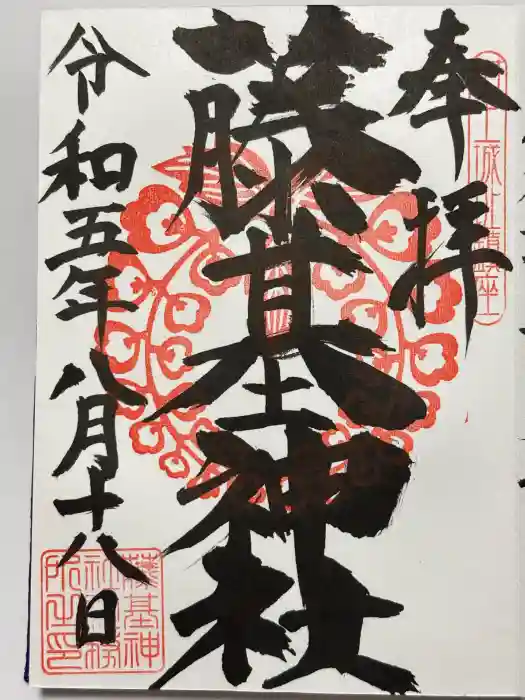 奉拝
城址鎮座
藤基神社
令和五年八月十八日
藤基神
社社務
所之印